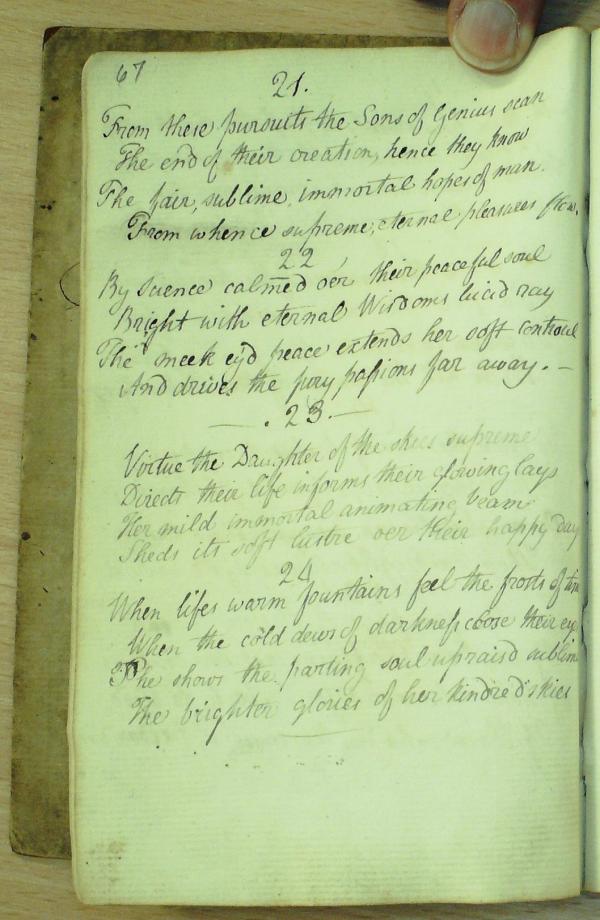 67
21.
From these pursuits the Sons of Genius scan
The end of their creation, hence they know
The fair, sublime, immortal hopes of man.
From whence supreme, eternal pleasures flow.
22
By Science calmed oer their peaceful soul
Bright with eternal Wisdoms lucid ray
The meek ey'd peace extends her soft controul
And drives the fury passions far away. –
– . 23. –
Virtue the Daughter of the skies supreme
Directs their life informs their glowing lays
Her mild immortal animating beam
Sheds its soft lustre oer their happy day
24
When lifes warm fountains feel the frosts of tim
When the cold dews of darkness close their ey
She shows the parting soul upraisd sublim
The brighter glories of her kindred skies